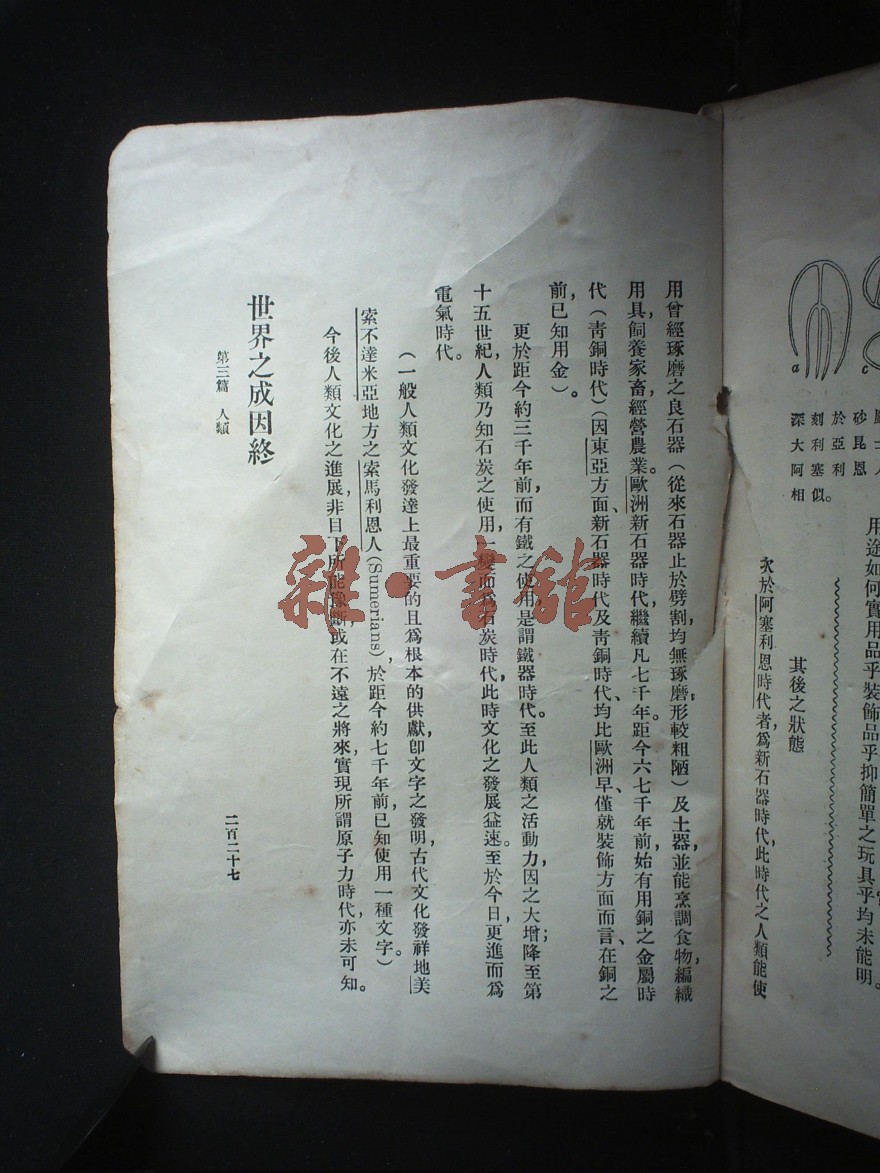 深大阿相
刻利塞似。
於亞利
砂昆恩
用途如何實用品乎裝飾品乎抑簡單之玩具乎均未能明。
其後之狀態
次於阿塞利恩時代者爲新石器時代,此時代之人類能使
用曾經琢磨之良石器(從來石器止於劈割,均無琢磨;形較粗陋)及土器,並能烹調食物,編織
用具,飼養家畜,經營農業。歐洲新石器時代,繼續凡七千年。距今六七千年前,始有用銅之金屬時
代(青銅時代)(因東亞方面、新石器時代及青銅時代、均比歐洲早、僅就裝飾方面而言、在銅之
前,已知用金)。
更於距今約三千年前,而有鐵之使用是謂鐵器時代。至此人類之活動力,因之大增降至第
十五世紀,人類乃知石炭之使用,一變而爲石炭時代,此時文化之發展益速。至於今日,更進而爲
電氣時代。
(一般人類文化發達上最重要的且爲根本的供獻,卽文字之發明,古代文化發祥地美
索不達米亞地方之索馬利恩人(Sumerians),於距今約七千年前,已知使用一種文字。)
今後人類文化之進展,非目下所能豫斷,或在不遠之將來,實現所謂原子力時代,亦未可知。
世界之成因終
第三篇 人類
二百二十七
雜·書館